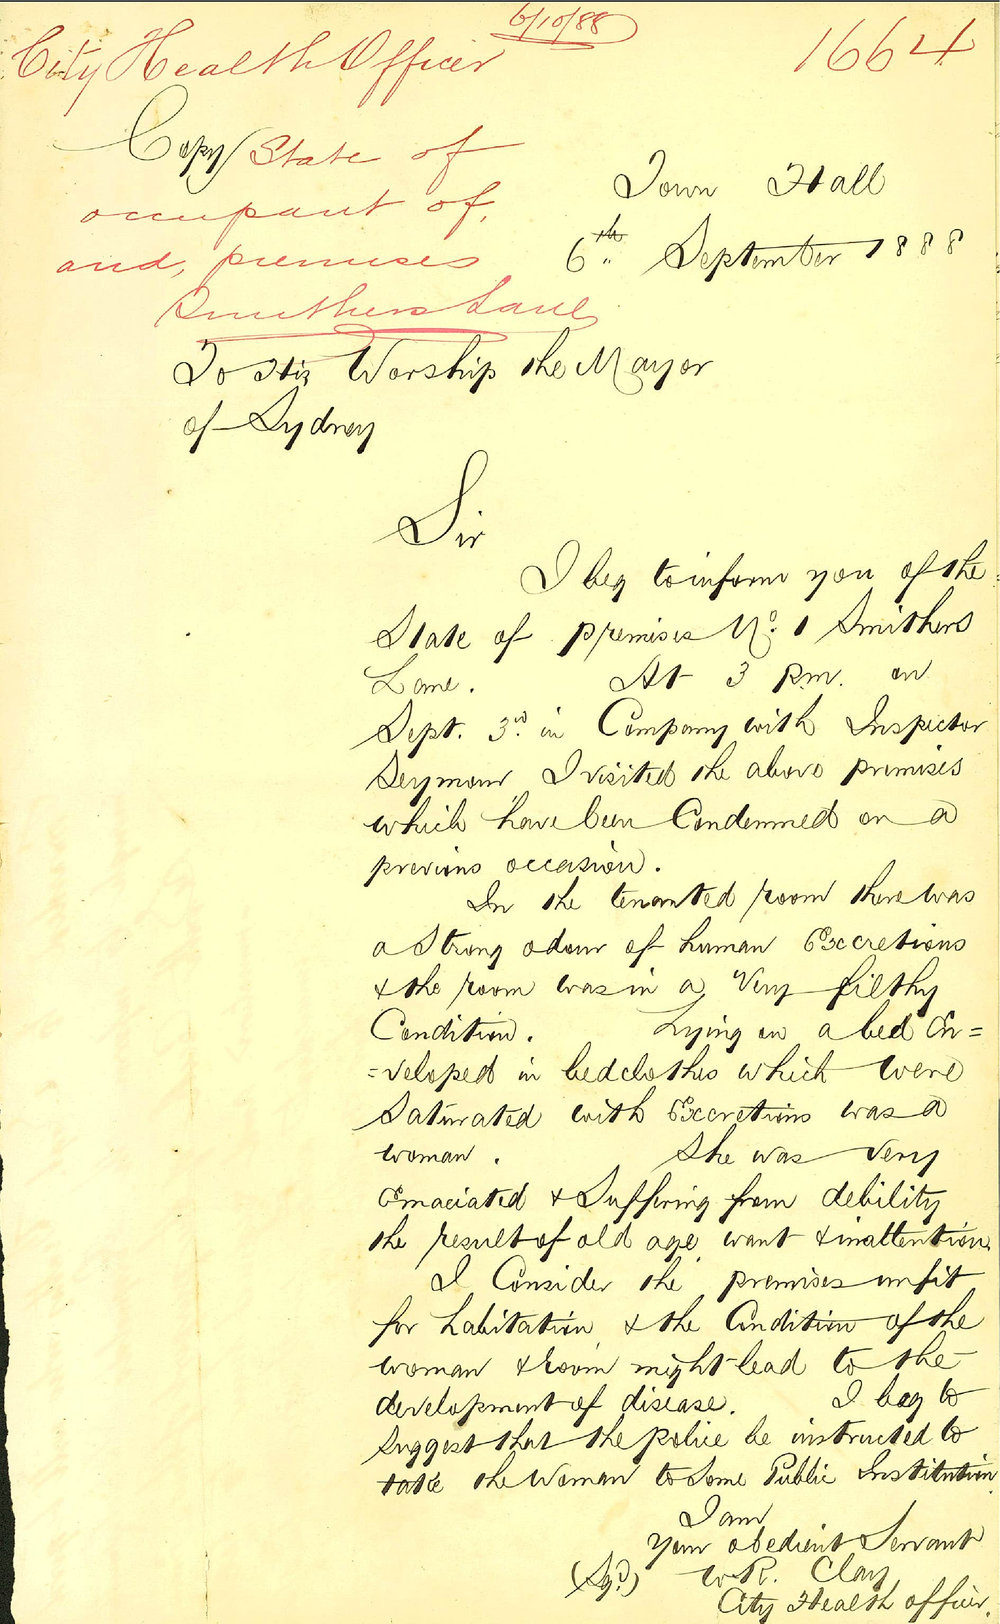 6/10/88
City Health Officer
1664
Copy/State of
occupant of,
and, premises
Smithers Lane
Town Hall
6th September 1888
To His Worship the Mayor
of Sydney
Sir
I beg to inform you of the
State of premises No. 1 Smithers
Lane. At 3 P.m. on
Sept. 3rd in Company with Inspector
Seymour I visited the above premises
which have been Condemned on a
previous occasion.
In the tenanted room there was
a Strong odour of human Excretions
& the room was in a Very filthy
Condition. Lying on a bed En=
=veloped in bedclothes which were
Saturated with Excretions was a
woman. She was Very
Emaciated & Suffering from debility
the result of old age want & inattention.
I Consider the premises unfit
for habitation & the Condition of the
woman & room might lead to the
development of disease. I beg to
Suggest that the police be instructed to
take the Woman to Some Public Institution.
I am
your obedient Servant
(Sgd) W.R. Clay
City Health officer.